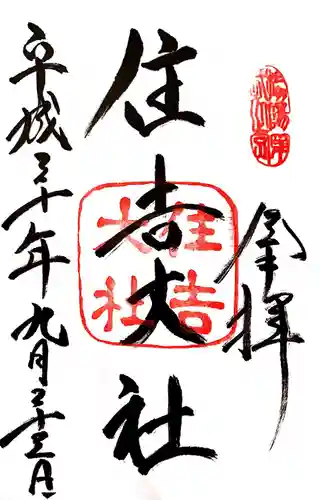 奉拝
住吉大社
住吉大社
平成三十年九月二十三日